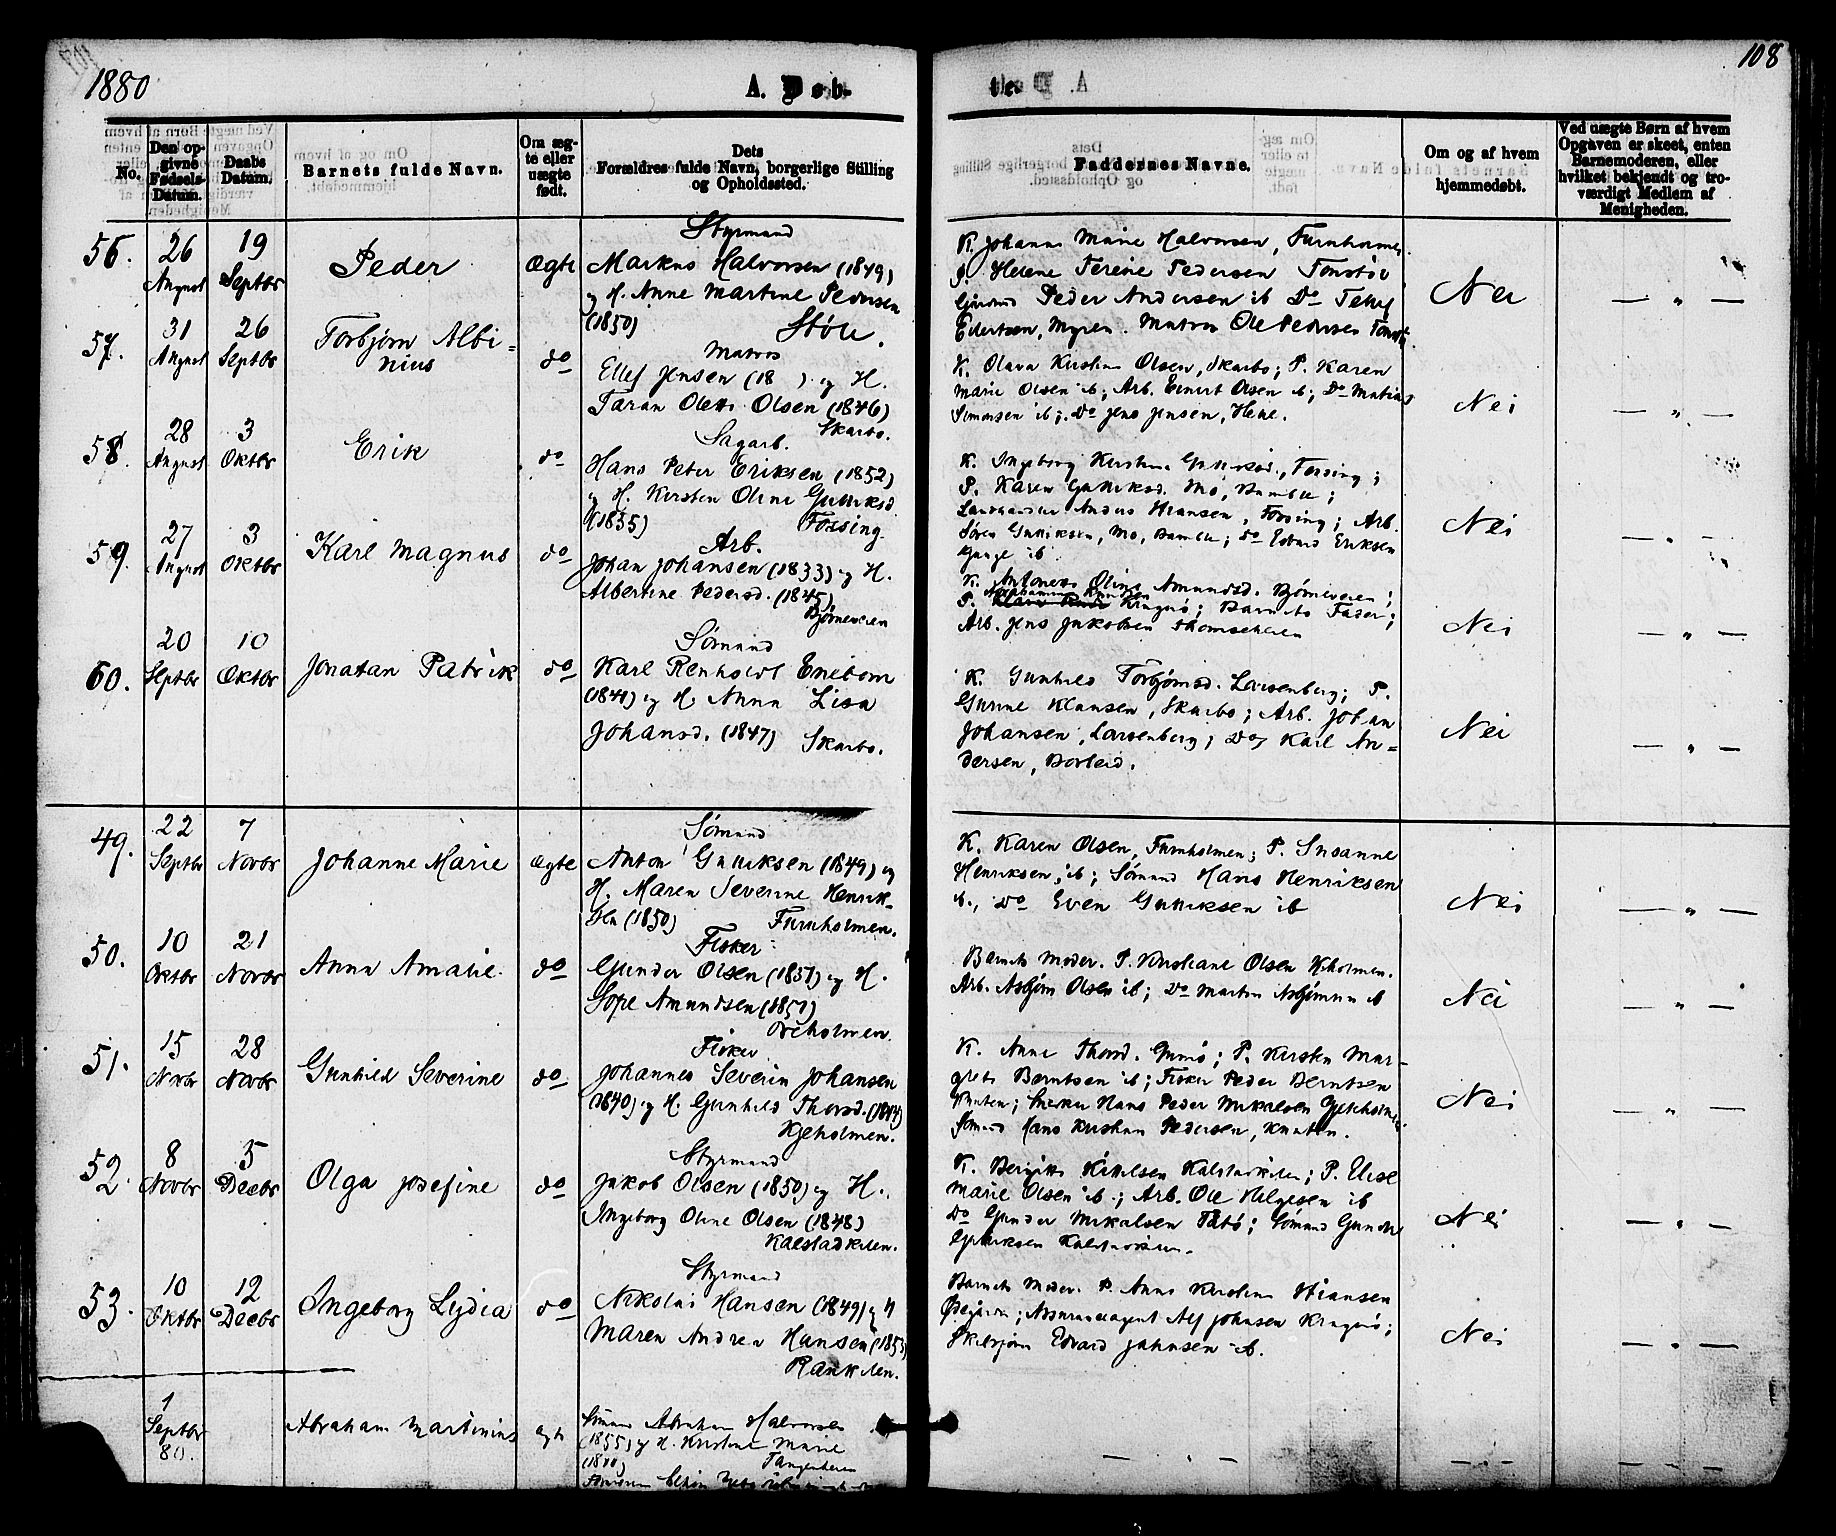 1880
A. Døb-
te.
108
No.
Den op-
givne
Fødsels-
Datum.
Daabs
Datum.
Barnets fulde Navn.
Om æg-
te eller
uægte
født.
Dets
Forældres fulde Navn, borgerlige Stilling
og Opholdssted.
Faddernes Navne.
Om og af hvem
hjemmedøbt.
Ved uægte Børn af hvem
Opgaven er skeet, enten
Barnemoderen, eller
hvilket bekjendt og tro-
værdigt Medlem af
Menigheden.
56.
26
August
19
Septbr
Peder
Ægte
Styrmand
Markus Halvorsen (1849)
og H. Anne Martine Pedersen
(1850) Støle.
K. Johanne Marie Halvorsen,
P. Helene Terese Pedersen
Peder Andersen ib Do Tellef
Eilertsen, Myren. Matros Ole Pedersen
Nei
— " —
57.
31
August
26
Septbr
Torbjørn Albi-
nius
do
Matros
Ellef Jensen (18 ). og H.
Taran Olette Olsen (1846)
Skarbo.
K. Olava Kirstine Olsen, Skarbo; P. Karen
Marie Olsen ib; Arb. Einert Olsen ib; Do Matias
Simonsen ib; Do Jens Jensen,
Nei
— " —
58.
28
August
3
Oktbr
Erik
do
Sagarb.
Hans Peter Eriksen (1852)
og H. Kirsten Oline Gulliksd
(1855) Fossing.
K. Ingeborg Kirstine Gulliksd., Fossing;
P. Karen Gulliksd. Mo, Bamble;
Anders Hansen, Fossing; Arb.
Søren Gulliksen, Mo, Bamble; Do Edvard Eriksen
ib
Nei
— " —
59.
27
August
3
Oktbr
Karl Magnus
do
Arb.
Johan Johansen (1833) og H.
Albertine Pedersd. (1845)
Bjørneveien
K. Antonette Oline Amundsd. Bjørneveien;
P. Kragerø; Barnets Fader;
Arb. Jens Jakobsen
Nei
— " —
60.
20
Septbr
10
Oktbr
Jonatan Patrik
do
Sømand
Karl Renholdt Enebom
(1841) og H. Anna Lisa
Johansd. (1847) Skarbo.
K. Gunhild Torbjørnsd. Larsenberg; P.
Gurine Klausen, Skarbo; Arb. Johan
Johansen, Larsenberg; Do Karl An-
dersen, Borteid.
Nei
— " —
49.
22
Septbr
7
Novbr
Johanne Marie
Ægte
Sømand
Anton Gulliksen (1849) og
H. Maren Severine Henrik-
sen (1850) Furuholmen.
K. Karen Olsen, Furuholmen; P. Susanne
Henriksen, ib; Sømand Hans Henriksen
ib., Do Even Gulliksen ib
Nei
— " —
50.
10
Oktbr
21
Novbr
Anna Amalie.
do
Fisker
Gunder Olsen (1851) og H.
Sofie Amundsen (1851)
Barnets Moder. P. Kristiane Olsen
Arb. Asbjørn Olsen ib; Do Martin Asbjørnsen ib
Nei
— " —
51.
15
Novbr
28
Novbr
Gunhild Severine
do
Fisker
Johannes Severin Johansen
(1840) og H. Gunhild Thorsd.
Kjeholmen.
K. Anne Thorsd. Gumø; P. Kirsten Mar-
grete Berntsen ib; Fisker Peder Berntsen
Knuten; Hans Peder Mikalsen
Sømand Hans Kristian Pedersen, Knuten.
Nei
— " —
52.
8
Novbr
5
Decbr
Olga Josefine
do
Styrmand
Jakob Olsen (1850) og H.
Ingeborg Oline Olsen (1848)
Kalstadkilen.
K. Bergitte Kittilsen Kalstadkilen; P. Elise
Marie Olsen ib; Arb. Ole Helgesen ib
Do Gunder Mikalsen Tåtø; Sømand Gunder
Gulliksen Kalstadkilen.
Nei
— " —
53.
10
Oktbr
12
Decbr
Ingeborg Lydia
do
Styrmand
Nikolai Hansen (1849) og H
Maren Andrea Hansen (1853)
Rankilen.
Barnets Moder. P. Anne Karoline Hansen
Assuranceagent Alf Johnsen Kragerø;
Edvard Johnsen ib.
Nei
— " —
1
Septbr
80.
Abraham Martinius
ægte
Sømand Abraham Halvorsen
(1855) og H. Kirstine Marie
Tangenheien